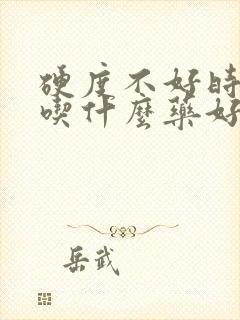 硬度不好時
喫什麼藥好
岳武